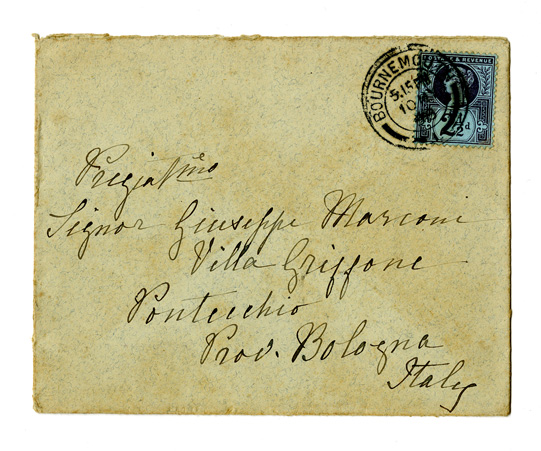 BOURNEMOU
POSTAGE & REVENUE
5.15 PM
10
2½d
Pregiatmo
Signor Giuseppe Marconi
Villa Griffone
Pontecchio
Prov. Bologna
Italy